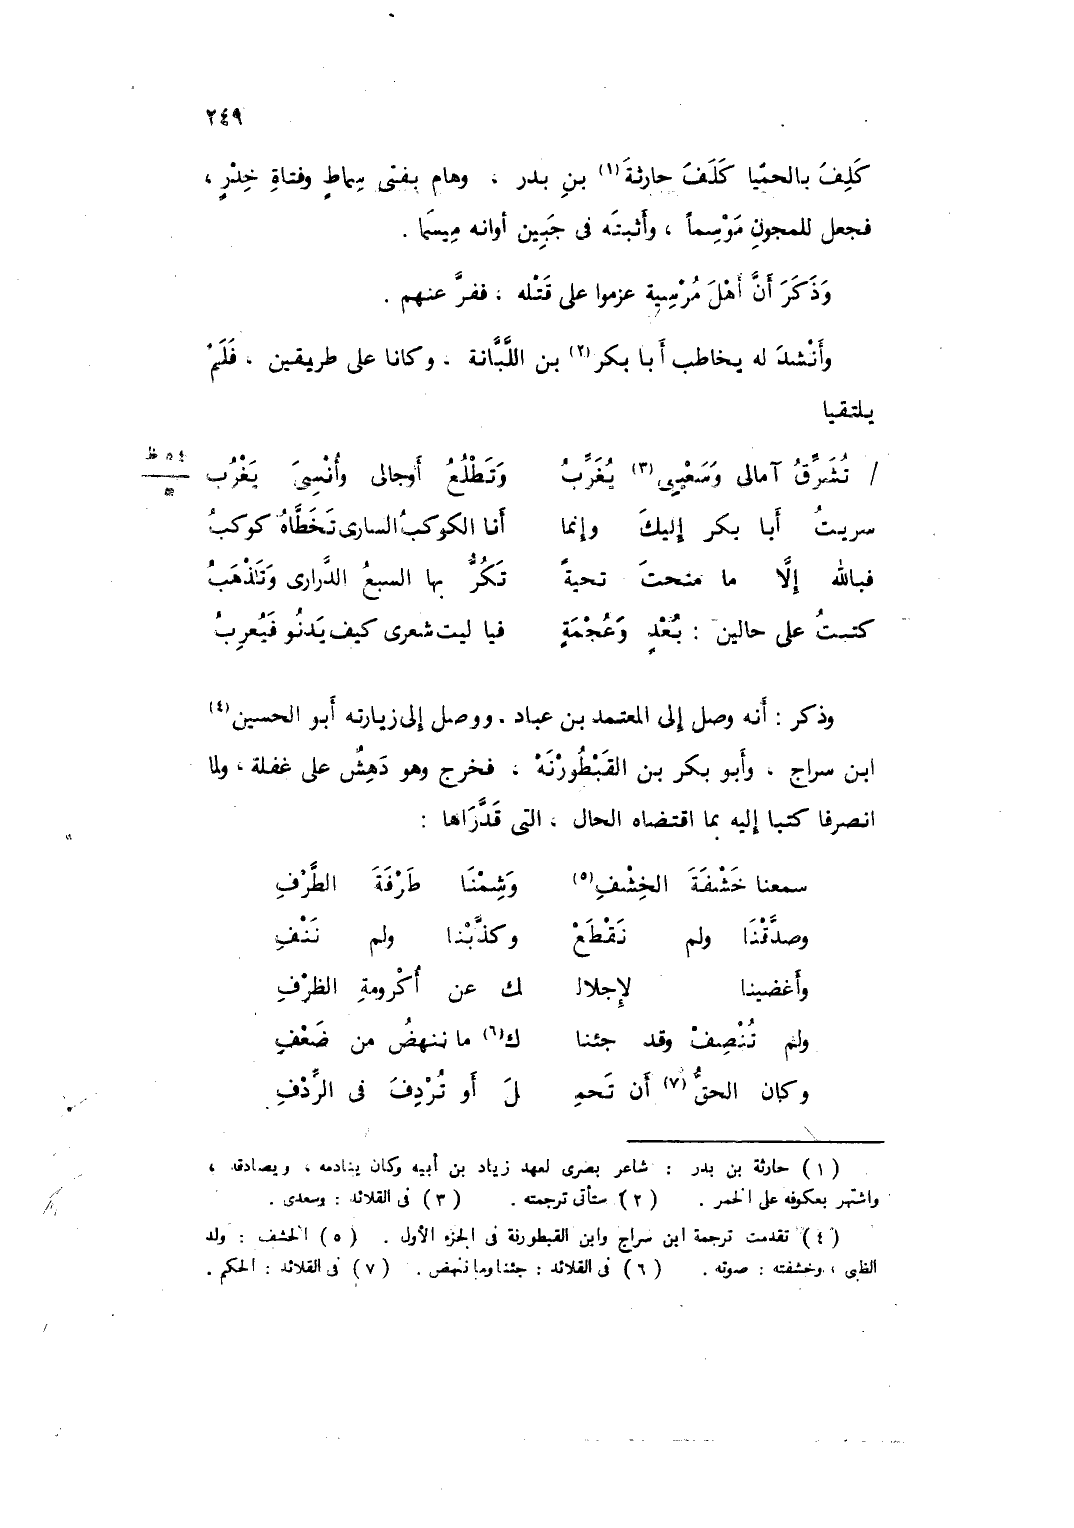 ٢٤٩
كَلِفَ بالحميّا كَلَفَ حارثةَ(١) بنِ بدر ، وهام بفتى سِماطٍ وفتاةِ خِدْرٍ ،
فجعل للمجونِ مَوْسِماً ، وأَثبتَه فى جَبِين أوانه مِيسَما .
وَذَكَرَ أَنَّ أَهْلَ مُرْسِية عزموا على قَتْله ، ففرَّ عنهم .
وأَنْشدَ له يخاطب أَبا بكر(٢) بن اللَّبَّانة ، وكانا على طريقين ، فَلَمْ
يلتقيا
/ تُشَرِّقُ آمالى وَسَعْيِى(٣) يُغَرِّبُ وَتَطْلُعُ أَوجالى وأُنْسِىَ يَغْرُب
٥٤ ظ
سريتُ أَبا بكر إليكَ وإنما أَنا الكوكبُ السارى تَخَطَّاهُ كوكبُ
فبالله إلَّا ما منحتَ تحيةً تَكُرُّ بها السبعُ الدَّرارى وَتَذْهَبُ
كتبتُ على حالين : بُعْدٍ وَعُجْمَةٍ فيا ليت شعرى كيف يَدنُو فَيُعرِبُ
وذكر : أَنه وصل إلى المعتمد بن عباد . ووصل إلى زيارته أَبو الحسين(٤)
ابن سراج ، وأَبو بكر بن القَبْطُورْنَهْ ، فخرج وهو دَهِشٌ على غفلة ، ولما
انصرفا كتبا إليه بما اقتضاه الحال ، التى قَدَّرَاها :
سمعنا خَشْفَةَ الخِشْفِ(٥) وَشِمْنَا طَرْفَةَ الطَّرْفِ
وصدَّقْنَا ولم نَقْطَعْ وكذَّبْنا ولم نَنْفِ
وأَغضينا لإجلا لك عن أُكْرومةِ الظرْفِ
ولم تُنْصِفْ وقد جئنا ك(٦) ما ننهضُ من ضَعْفٍ
وكان الحقُّ(٧) أَن تَحمِ لَ أَو تُرْدِفَ فى الرِّدْفِ
(١) حارثة بن بدر : شاعر بصرى لعهد زياد بن أبيه وكان ينادمه ، ويصادقه ،
واشتهر بعكوفه على الخمر . (٢) ستأتى ترجمته . (٣) فى القلائد : وسعدى .
(٤) تقدمت ترجمة ابن سراج وابن القبطورنة فى الجزء الأول . (٥) الخشف : ولد
الظبى ، وخشفته : صوته . (٦) فى القلائد : جئنا وما ننهض . (٧) فى القلائد : الحكم .